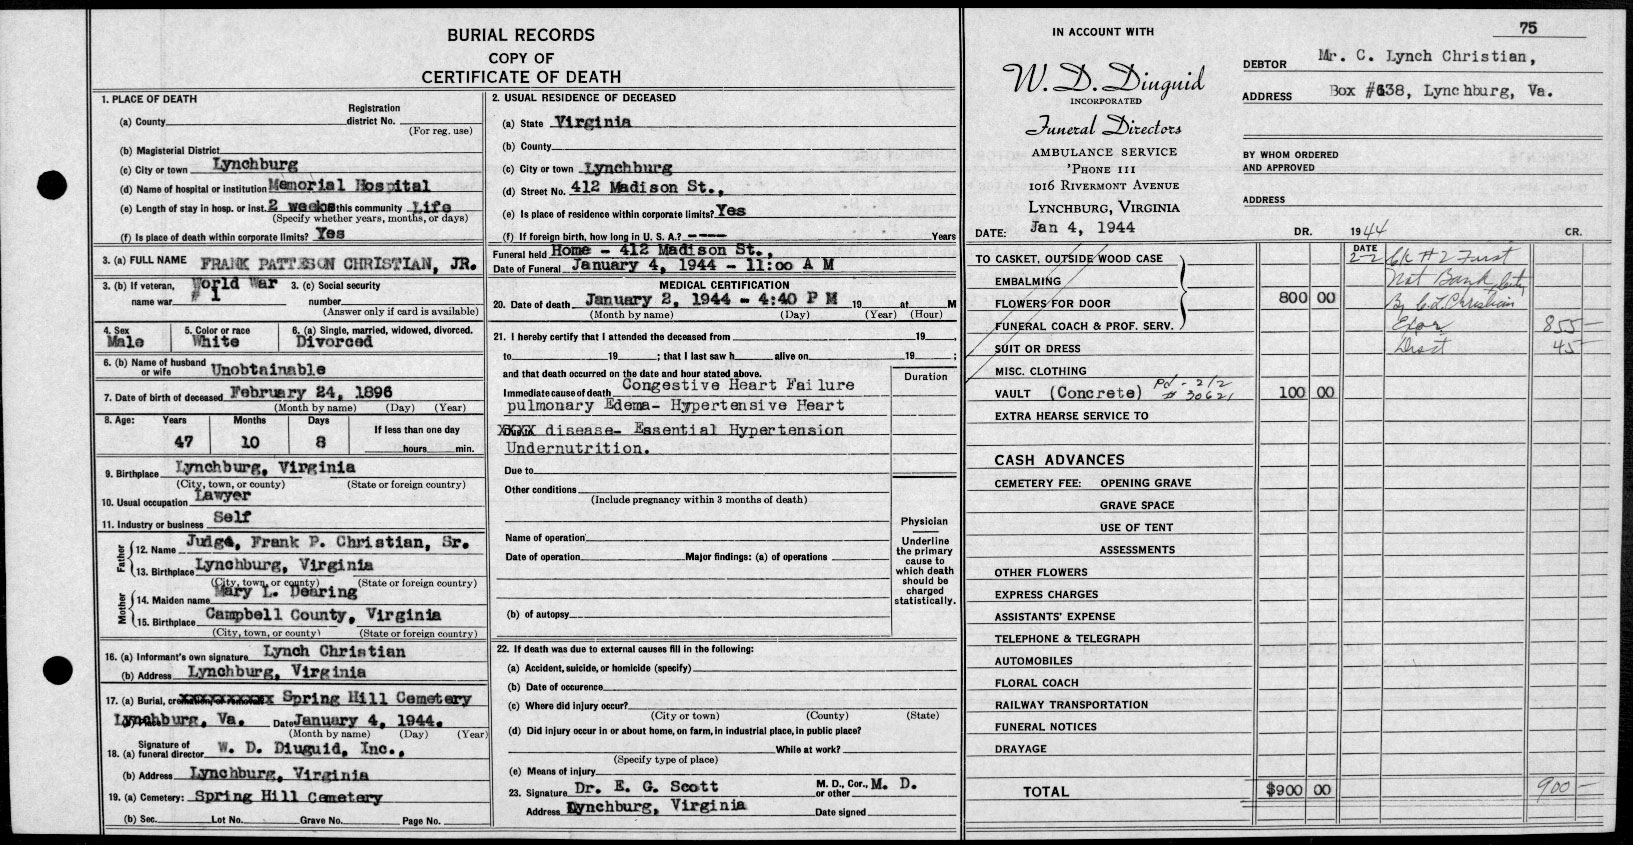 BURIAL RECORDS
COPY OF
CERTIFICATE OF DEATH
1. PLACE OF DEATH
(a) County
Registration district No.
(For reg. use)
(b) Magisterial District
(c) City or town Lynchburg
(d) Name of hospital or institution Memorial Hospital
(e) Length of stay in hosp. or inst. 2 weeks this community Life
(Specify whether years, months, or days)
(f) Is place of death within corporate limits? Yes
3. (a) FULL NAME FRANK PATTESON CHRISTIAN, JR.
3. (b) If veteran, name war World War # 1
3. (c) Social security number
(Answer only if card is available)
4. Sex Male
5. Color or race White
6. (a) Single, married, widowed, divorced. Divorced
6. (b) Name of husband or wife Unobtainable
7. Date of birth of deceased February 24, 1896
(Month by name) (Day) (Year)
8. Age: Years Months Days If less than one day
47 10 8 hours min.
9. Birthplace Lynchburg, Virginia
(City, town, or county) (State or foreign country)
10. Usual occupation Lawyer
11. Industry or business Self
Father
12. Name Judge, Frank P. Christian, Sr.
13. Birthplace Lynchburg, Virginia
(City, town, or county) (State or foreign country)
Mother
14. Maiden name Mary L. Dearing
15. Birthplace Campbell County, Virginia
(City, town, or county) (State or foreign country)
16. (a) Informant's own signature Lynch Christian
(b) Address Lynchburg, Virginia
17. (a) Burial, cremation, or removal Spring Hill Cemetery
Lynchburg, Va. Date January 4, 1944.
(Month by name) (Day) (Year)
18. (a) Signature of funeral director W. D. Diuguid, Inc.,
(b) Address Lynchburg, Virginia
19. (a) Cemetery: Spring Hill Cemetery
(b) Sec. Lot No. Grave No. Page No.
2. USUAL RESIDENCE OF DECEASED
(a) State Virginia
(b) County
(c) City or town Lynchburg
(d) Street No. 412 Madison St.,
(e) Is place of residence within corporate limits? Yes
(f) If foreign birth, how long in U. S. A.? ---- Years
Funeral held Home - 412 Madison St.,
Date of Funeral January 4, 1944 - 11:00 A M
MEDICAL CERTIFICATION
20. Date of death January 2, 1944 - 4:40 P M 19 at M
(Month by name) (Day) (Year) (Hour)
21. I hereby certify that I attended the deceased from 19 ,
to 19 ; that I last saw h alive on 19 ;
and that death occurred on the date and hour stated above.
Duration
Immediate cause of death Congestive Heart Failure
pulmonary Edema- Hypertensive Heart
XXXX disease- Essential Hypertension
Undernutrition.
Due to
Other conditions
(Include pregnancy within 3 months of death)
Physician
Underline the primary cause to which death should be charged statistically.
Name of operation
Date of operation Major findings: (a) of operations
(b) of autopsy
22. If death was due to external causes fill in the following:
(a) Accident, suicide, or homicide (specify)
(b) Date of occurence
(c) Where did injury occur?
(City or town) (County) (State)
(d) Did injury occur in or about home, on farm, in industrial place, in public place?
While at work?
(Specify type of place)
(e) Means of injury
23. Signature Dr. E. G. Scott M. D., Cor., or other M. D.
Address Lynchburg, Virginia Date signed
75
IN ACCOUNT WITH
W. D. Diuguid
INCORPORATED
Funeral Directors
AMBULANCE SERVICE
'PHONE 111
1016 RIVERMONT AVENUE
LYNCHBURG, VIRGINIA
DATE: Jan 4, 1944
DEBTOR Mr. C. Lynch Christian,
ADDRESS Box #638, Lynchburg, Va.
BY WHOM ORDERED AND APPROVED
ADDRESS
DR. 1944 CR.
DATE
TO CASKET, OUTSIDE WOOD CASE 2-2 Ck #2 First
EMBALMING Nat Bank City
FLOWERS FOR DOOR 800 00 By C. L. Christian
FUNERAL COACH & PROF. SERV. Exor 855-
SUIT OR DRESS Disct 45-
MISC. CLOTHING
VAULT (Concrete) Pd - 2/2 # 30621 100 00
EXTRA HEARSE SERVICE TO
CASH ADVANCES
CEMETERY FEE: OPENING GRAVE
GRAVE SPACE
USE OF TENT
ASSESSMENTS
OTHER FLOWERS
EXPRESS CHARGES
ASSISTANTS' EXPENSE
TELEPHONE & TELEGRAPH
AUTOMOBILES
FLORAL COACH
RAILWAY TRANSPORTATION
FUNERAL NOTICES
DRAYAGE
TOTAL $900 00 900-